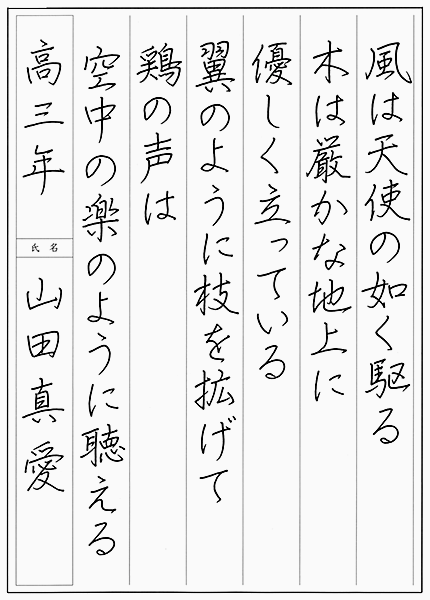 風は天使の如く駆る
木は厳かな地上に
優しく立っている
翼のように枝を拡げて
鶏の声は
空中の楽のように聴える
高三年
氏名
山田真愛